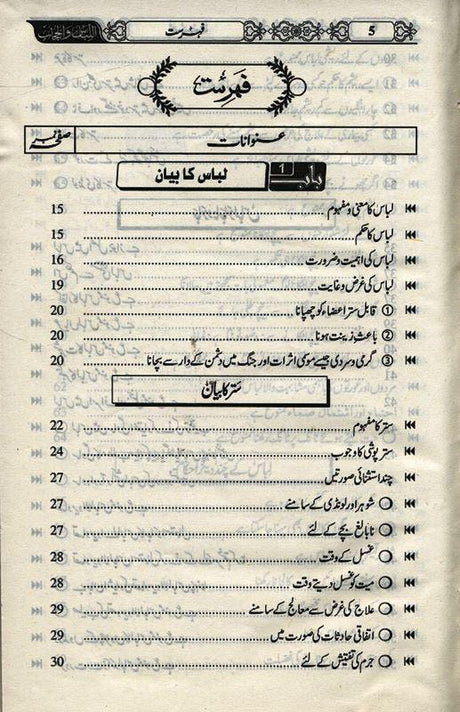 5 فہرست اللباس والحجاب
فہرست
عنوانات صفحہ نمبر
باب 1 لباس کا بیان
لباس کا معنی و مفہوم 15
لباس کا حکم 15
لباس کی اہمیت و ضرورت 16
لباس کی غرض و غایت 19
① قابل ستر اعضاء کو چھپانا 20
② باعث زینت ہونا 20
③ گرمی و سردی جیسے موسمی اثرات اور جنگ میں دشمن کے وار سے بچانا 20
ستر کا بیان
ستر کا مفہوم 22
ستر پوشی کا وجوب 24
چند استثنائی صورتیں 27
○ شوہر اور لونڈی کے سامنے 27
○ نابالغ بچے کے لئے 27
○ غسل کے وقت 28
○ میت کو غسل دیتے وقت 28
○ علاج کی غرض سے معالج کے سامنے 29
○ اتفاقی حادثات کی صورت میں 29
○ جرم کی تفتیش کے لئے 30